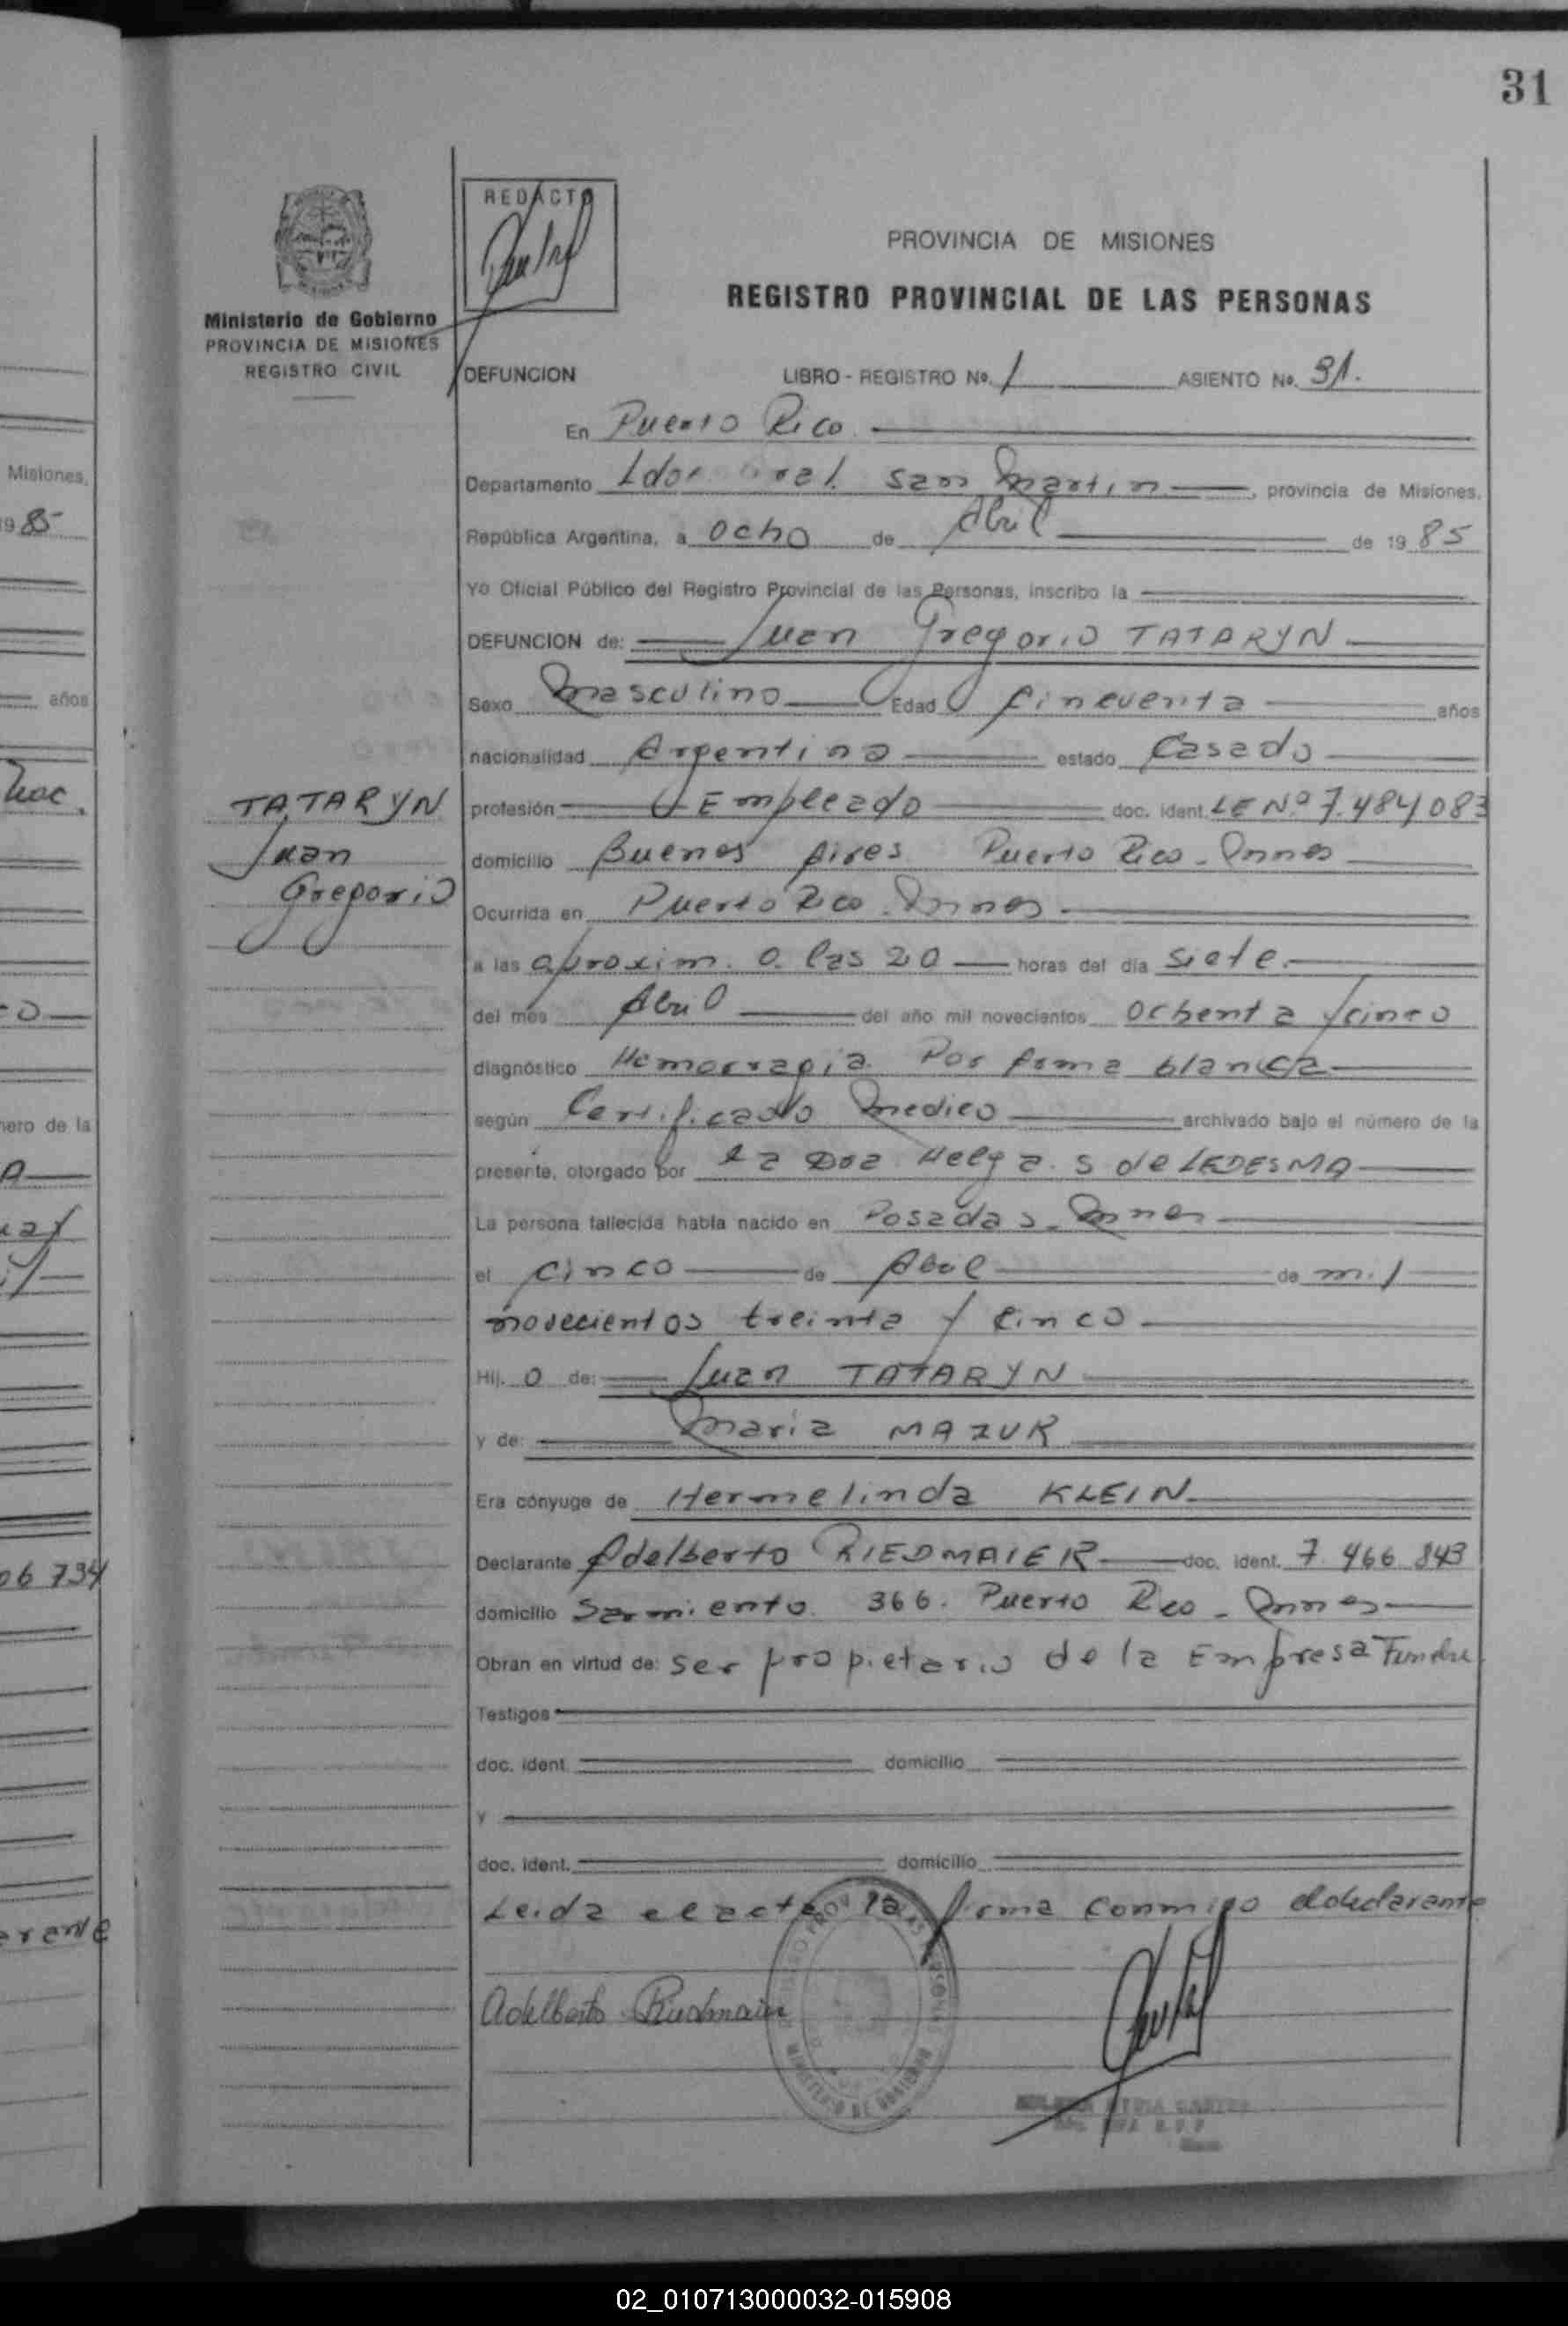 31
REDACTO
PROVINCIA DE MISIONES
REGISTRO PROVINCIAL DE LAS PERSONAS
Ministerio de Gobierno
PROVINCIA DE MISIONES
REGISTRO CIVIL
DEFUNCION LIBRO - REGISTRO Nº. 1 ASIENTO Nº. 31.
En Puerto Rico
Departamento Ldor Gral. San Martin, provincia de Misiones.
República Argentina, a ocho de Abril de 19 85
Yo Oficial Público del Registro Provincial de las Personas, inscribo la
DEFUNCION de: Juan Gregorio TATARYN
Sexo Masculino Edad Cincuenta años
nacionalidad Argentina estado Casado
TATARYN
Juan
Gregorio
profesión Empleado doc. ident. LE Nº 7.484083
domicilio Buenos Aires Puerto Rico - Mnes
Ocurrida en Puerto Rico. Mnes
a las aproxim. a las 20 horas del día siete.
del mes Abril del año mil novecientos ochenta y cinco
diagnóstico Hemorragia Por Arma blanca
según Certificado Medico archivado bajo el número de la
presente, otorgado por la Dra Helga. S de LEDESMA
La persona fallecida había nacido en Posadas - Mnes
el cinco de Abril de mil
novecientos treinta y cinco
Hij. o de: Juan TATARYN
y de: Maria MAZUR
Era cónyuge de Hermelinda KLEIN
Declarante Adelberto RIEDMAIER doc. ident. 7 466 843
domicilio Sarmiento 366. Puerto Rico - Mnes
Obran en virtud de: ser propietario de la Empresa
Testigos
doc. ident. domicilio
y
doc. ident. domicilio
Leida el acta la firma conmigo el declarante
Adelberto Riedmaier
MINISTERIO DE GOBIERNO
Misiones,
19 85
años
nero de la
06 734
02_010713000032-015908